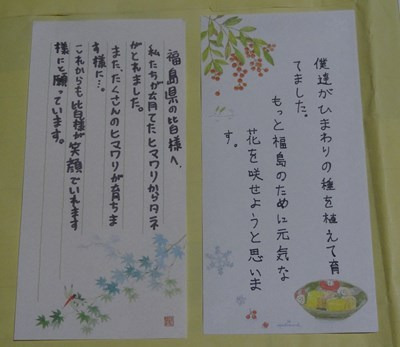 僕達がひまわりの種を植えて育
てました。
もっと福島のために元気な
花を咲せようと思いま
す。
福島県の皆様へ、
私たちが育てたヒマワリからタネ
がとれました。
また、たくさんのヒマワリが育ちま
す様に…。
これからも皆様が笑顔でいれます
様にと願っています。